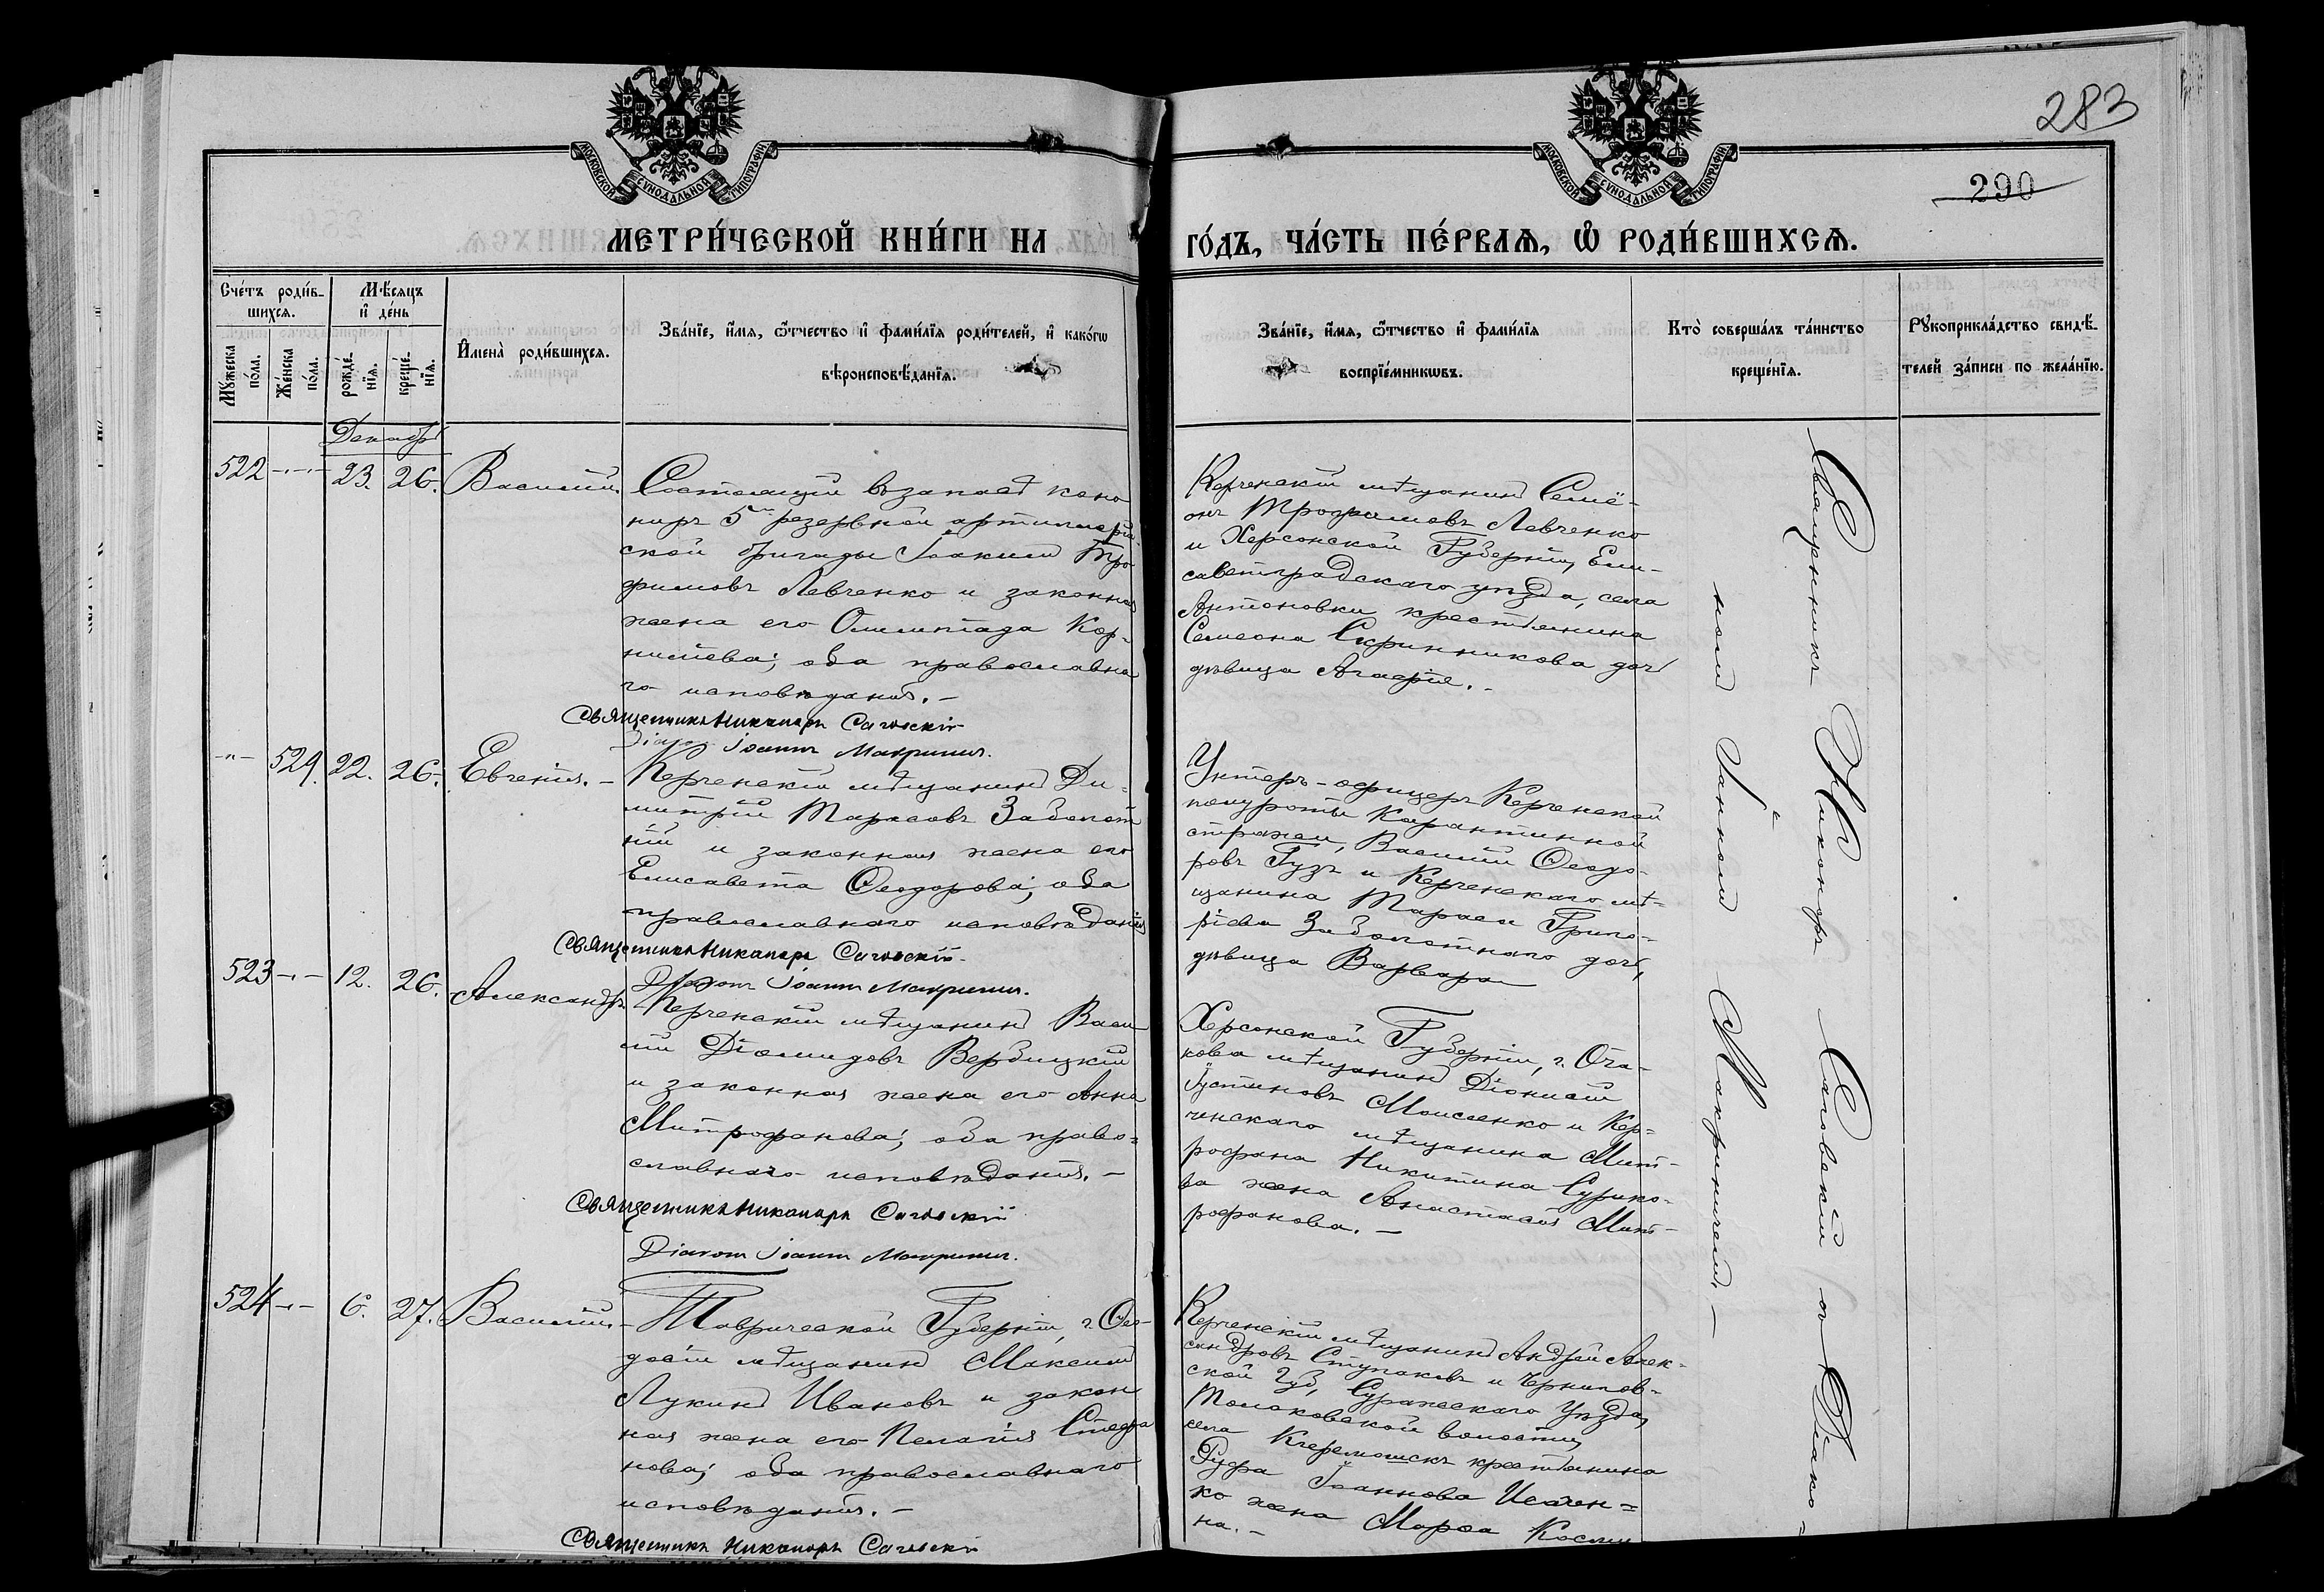 283
290
МОСКОВСКОЙ СУНОДАЛЬНОЙ ТИПОГРАФІИ
МОСКОВСКОЙ СУНОДАЛЬНОЙ ТИПОГРАФІИ
МЕТРИ́ЧЕСКОЙ КНИ́ГИ НА
ГО́ДЪ, ЧА́СТЬ ПЕ́РВАѦ, Ѽ РОДИ́ВШИХСѦ.
Сче́тъ роди́в-
шихсѧ.
Мꙋ́жеска
по́ла.
Же́нска
по́ла.
Мѣ́сѧцъ
и҆ де́нь
рожде́-
нїѧ.
креще́-
нїѧ.
И҆мена̀ роди́вшихсѧ.
Зва́нїе, и҆́мѧ, ѻ҆́тчество и҆ фами́лїѧ роди́телей, и҆ како́гѡ
вѣроисповѣ́данїѧ.
Зва́нїе, и҆́мѧ, ѻ҆́тчество и҆ фами́лїѧ
воспрїе́мникѡвъ.
Кто̀ соверша́лъ та́инство
креще́нїѧ.
Рꙋкоприкла́дство свидѣ́-
телей за́писи по жела́нїю.
Декабрь
522 -„- 23. 26. Василій
Состоящій въ запасѣ кано
ниръ 5й резервной артиллерій
ской бригады Іоакимъ Тро
фимовъ Левченко и законная
жена его Олимпіада Кор-
нилiева; оба православна
го исповѣданія. –
Священникъ Никаноръ Саговскій
Діаконъ Іоаннъ Макриничъ.
Керченскій мѣщанинъ Семе-
онъ Трофимовъ Левченко
и Херсонской Губерніи, Ели-
саветградскаго уѣзда, села
Антоновки крестьянина
Симеона Скринникова дочь
дѣвица Агафія. –
-„- 529. 22. 26. Евгенія. –
Керченскій мѣщанинъ Ди-
митрій Тарасовъ Заболот
ній и законная жена его
Елисавета Ѳеодорова; оба
православнаго исповѣданія
Священникъ Никаноръ Саговскій
Діаконъ Іоаннъ Макриничъ.
Унтеръ-офицеръ Керченской
полуроты Карантинной
стражи, Василій Ѳеодо-
ровъ Гузъ и Керченскаго мѣ-
щанина Тараса Григо-
ріева Заболотнаго дочь,
дѣвица Варвара
523 -„- 12. 26. Александръ
Керченскій мѣщанинъ Васи
лій Діомидовъ Вербицкій
и законная жена его Анна
Митрофанова; оба право-
славнаго исповѣданія. –
Священникъ Никаноръ Саговскій
Діаконъ Іоаннъ Макриничъ.
Херсонской Губерніи, г. Оча-
кова мѣщанинъ Діонисій
Іустиновъ Моисеенко и Кер-
ченскаго мѣщанина Мит-
рофана Никитина Сурико-
ва жена Анастасія Мит-
рофанова. –
524 -„- 6. 27. Василій –
Таврической Губерніи, г. Ѳео-
досіи мѣщанинъ Максимъ
Лукинъ Ивановъ и закон
ная жена его Пелагія Стефа
нова; оба православнаго
исповѣданія. –
Священникъ Никаноръ Саговскій
Керченскій мѣщанинъ Андрей Алек-
сандровъ Ступаковъ и Чернигов-
ской Губ, Суражскаго Уѣзда,
волости,
села крестьянина
Іоаннова Исачен-
ко жена Марѳа Косми
на. –
Священникъ Никаноръ Саговскій съ Діако-
номъ Іоанномъ Макриничемъ. –